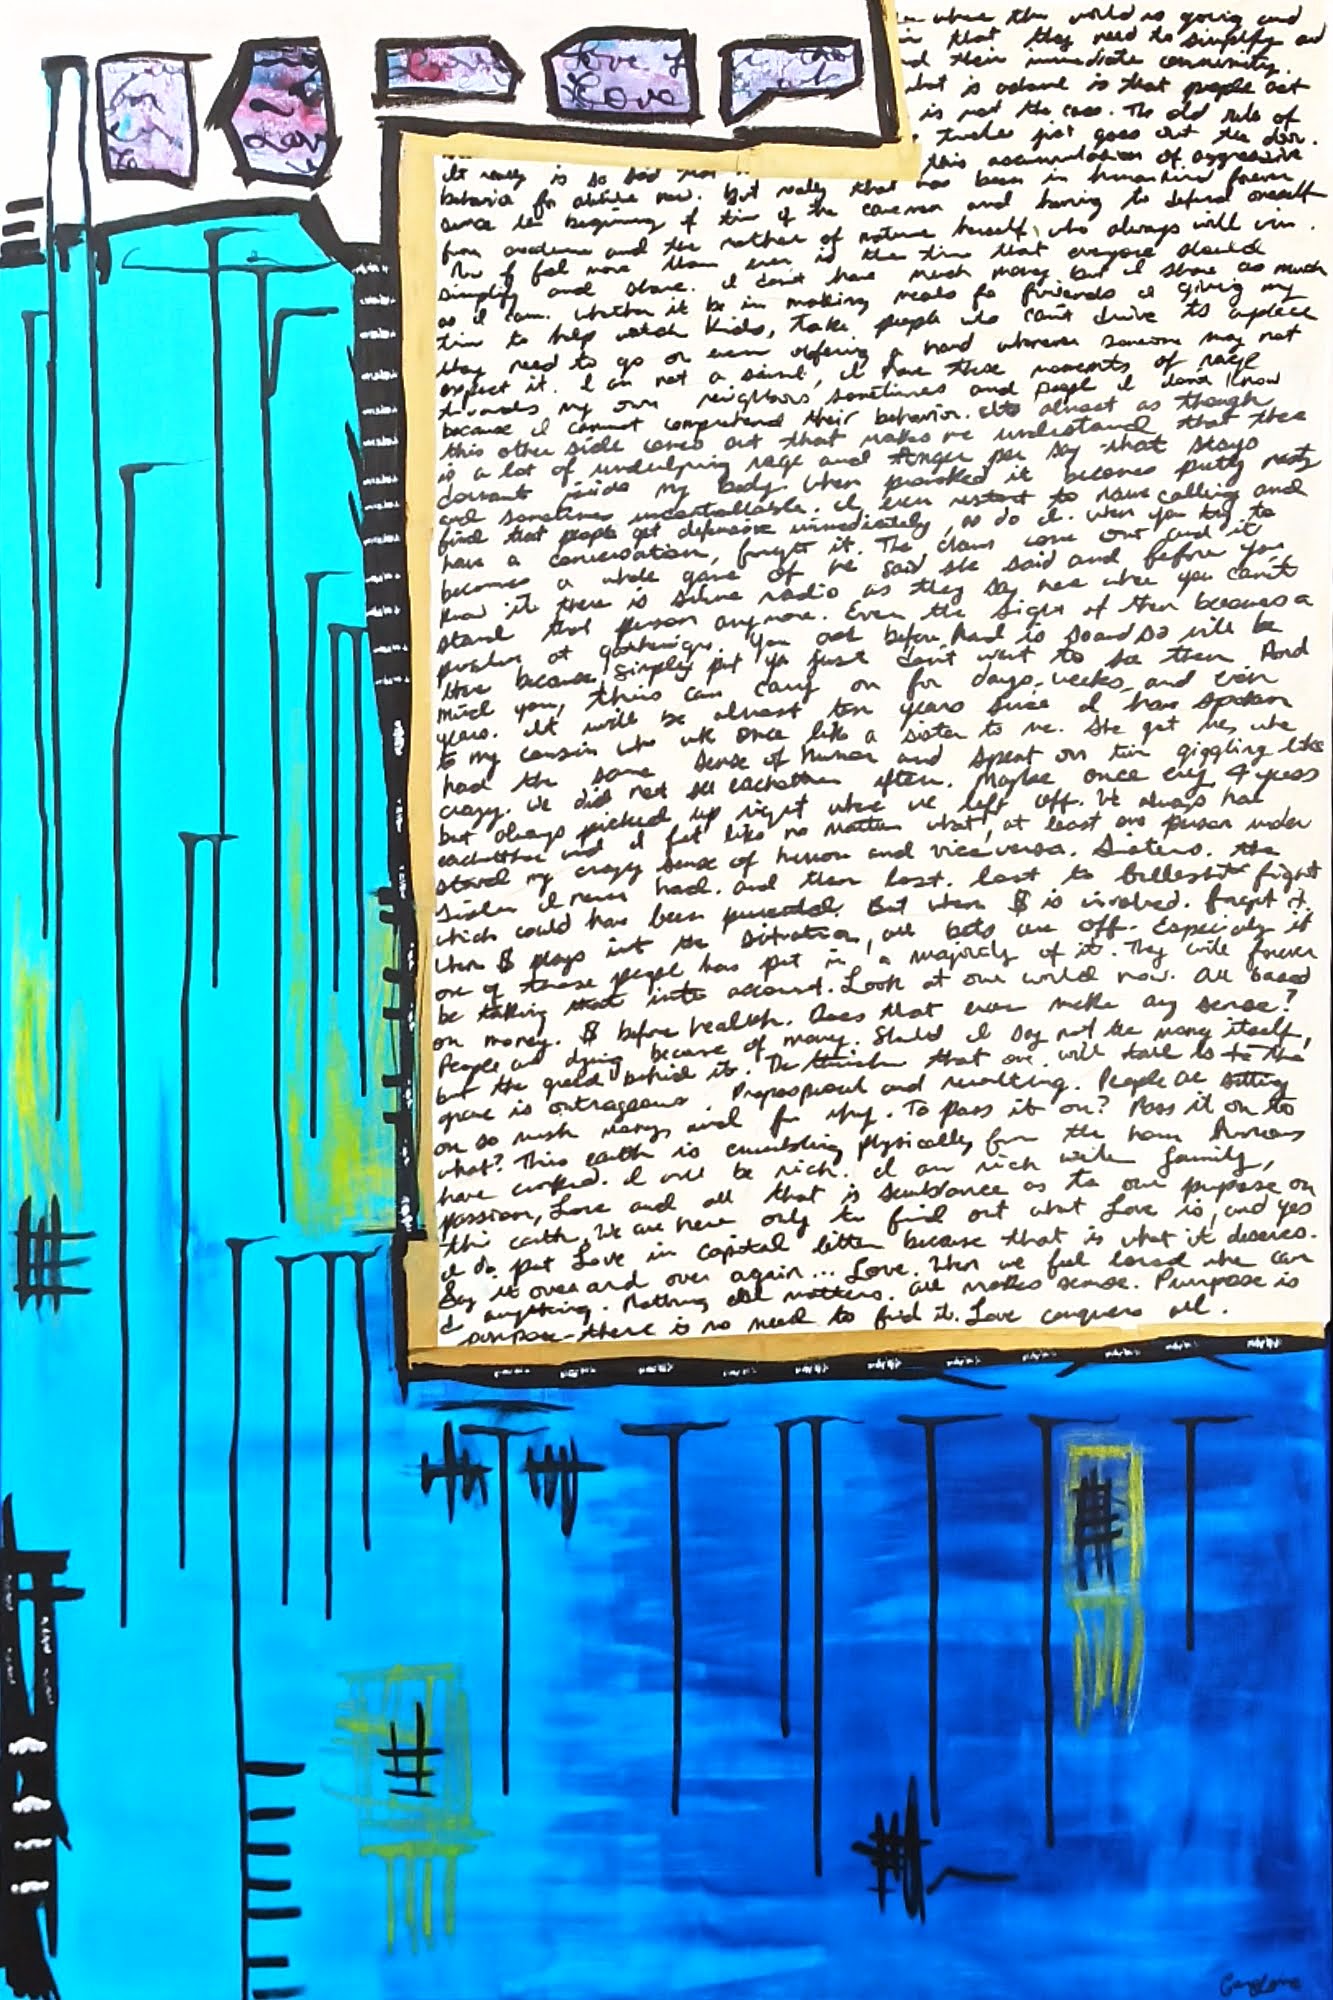 Love
love of
Love
where the world is going and
that they need to simplify and
their immediate community.
what is is that people act
is not the case. The old rule of
just goes out the door.
this accumulation of aggressive
It really is so sad
behavior for awhile now. But really that has been in humankind forever
since the beginning of time of the caveman and having to defend oneself
from and the mother of nature herself, who always will win.
Now I feel more than ever is the time that everyone should
simplify and share. I don't have much money but I share as much
as I can. Whether it be in making meals for friends or giving my
time to help watch kids, take people who can't drive to a place
they need to go or even offering a hand whenever someone may not
expect it. I am not a saint, I have these moments of rage
towards my own neighbors sometimes and people I don't know
because I cannot comprehend their behavior. It's almost as though
this other side comes out that makes me understand that there
is a lot of underlying rage and anger per say that stays
dormant inside my body. When provoked it becomes pretty nasty
and sometimes uncontrollable. I even resort to name calling and
find that people get defensive immediately, as do I. When you try to
have a conversation, forget it. The claws come out and it
becomes a whole game of he said she said and before you
know it there is silence radio as they say now where you can't
stand that person anymore. Even the sight of them becomes a
problem at gatherings. You ask before hand is so and so will be
there because simply put you just don't want to see them. And
mind you, this can carry on for days, weeks, and even
years. It will be almost ten years since I have spoken
to my cousin who was once like a sister to me. She got me, we
had the same sense of humor and spent our time giggling like
crazy. We did not see eachother often. Maybe once every 4 years
but always picked up right where we left off. We always had
eachother and I felt like no matter what, at least one person under
stood my crazy sense of humor and vice versa. Sisters. the
sister I never had. and then lost. lost to bullshit fight
which could have been prevented. But when $ is involved. forget it.
When $ plays into the situation, all bets are off. Especially if
one of those people has put in a majority of it. They will forever
be taking that into account. Look at our world now. All based
on money. $ before health. Does that even make any sense?
People are dying because of money. Should I say not the money itself,
but the greed behind it. The that one will take to the
grave is outrageous. and revolting. People are sitting
on so much money and for why. To pass it on? Pass it on to
what? This earth is crumbling physically from the harm humans
have I will be rich. I am rich with family,
passion, Love and all that is substance as to our purpose on
this earth. We are here only to find out what Love is, and yes
I do put Love in capital letters because that is what it deserves.
Say it over and over again... Love. When we feel loved we can
do anything. Nothing else matters. all makes sense. Purpose is
purpose - there is no need to find it. Love conquers all.